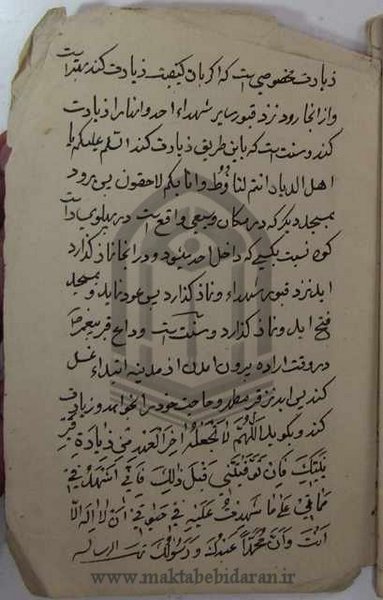 زیارت مخصوصی است که اگر بان کیفیت زیارت کند بهتر است
و از انجا رود نزد قبور سایر شهداء احد و انها را زیارت
کند و سنت است که باین طریق زیارت کند السّلام علیکم یا
اهل الدیار انتم لنا فرط و انا بکم لاحقون پس برود
بمسجد دیگر که در مکان وسیعی واقع است در پهلوی راست
کوه نسبت بکسیکه داخل احد میشود و در انجا نماز گذارد
اید نزد قبور شهداء و نماز گذارد پس عود نماید و بمسجد
فتح اید و نماز گذارد و سنت است وداع قبر پیغمبر
در وقت اراده بیرون امدن از مدینه ابتداء غسل
کند پس اید نزد قبر مطهر و حاجت خود را بخواهد و زیارت
کند و بگوید اَللّهُمَّ لا تَجْعَلْهُ اخِرَ الْعَهْدِ مِنّی زِیارَةِ قَبْرِ
نَبِیِّکَ فَاِنْ تَوَفَّیْتَنی قَبْلَ ذلِکَ فَاِنّی اَشْهَدُ فی
مَماتی عَلی ما شَهِدْتُ عَلَیْهِ فی حَیوتی اَنْ لا اِلهَ اِلاّ
اَنْتَ وَ اَنَّ مُحَمَّداً عَبْدُکَ وَ رَسُولُکَ تمت الرساله
www.maktabebidaran.ir